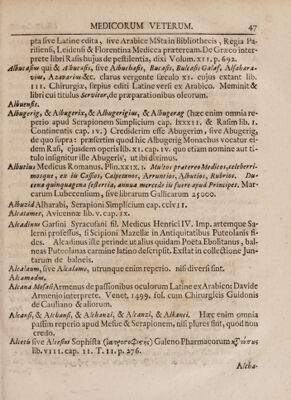 MEDICORUM VETERUM. 47
pta sive Latine edita, sive Arabice MSta in Bibliothecis, Regia Pa-
risiensi, Leidensi & Florentina Medicea præter eam. De Græco inter-
prete libri Rasis hujus de pestilentia, dixi Volum. XII. p. 692.
Albucasim qui & Albucasis, sive Albuchasis, Bucasis, Bulcasis Galaf, Alsahara-
vius, Azaravius &c. clarus vergente sæculo XI. cujus extant lib.
III. Chirurgiæ, sæpius editi Latine versi ex Arabico. Meminit &
libri cui titulus Servitor, de præparationibus oleorum.
Albuensis.
Albugerig, & Albugerix, & Albugerigius, & Albugeag (hæc enim omnia re-
perio apud Serapionem Simplicium cap. LXXXII. & Rasim lib. I.
Continentis cap. IV.) Crediderim esse Abugerim, sive Abugerig,
de quo supra: præsertim quod hic Albugerig Monachus vocatur ei-
dem Rasi, ejusdem operis lib. XI. cap. IV. quo etiam nomine aut ti-
tulo insignitur ille Abugeris, ut ibi diximus.
Albutius Medicus Romanus. Plin. XXIX. 1. Multos prætereo Medicos, celeberri-
mosque, ex iis Cassios, Calpetanos, Arruntios, Albutios, Rubrios. Du-
cena quinquagena sestertia, annua mercede iis fuere apud Principes. Mar-
carum Lubecensium, sive librarum Gallicarum 25000.
Albuzid Alharabi, Serapioni Simplicium cap. CCLVII.
Alcatamer, Avicennæ lib. V. cap. IX.
Alcadinus Garsini Syracusani fil. Medicus Henrici IV. Imp. artemque Sa-
lerni professus, si Scipioni Mazellæ in Antiquitatibus Puteolanis fi-
des. Alcadinus iste perinde ut alius quidam Poëta Ebolitanus, bal-
neas Puteolanas carmine latino descripsit. Exstat in collectione Jun-
tarum de balneis.
Alcalaum, sive Alcolamo, utrunque enim reperio, nisi diversi sint.
Alcamadm.
Alcana Mosali Armenus de passionibus oculorum Latine ex Arabico: Davide
Armenio interprete. Venet. 1499. fol. cum Chirurgicis Guidonis
de Cauliano & aliorum.
Alcansi, & Alchansi, & Alchanzi, & Alcanzi, & Alkanci. Hæc enim omnia
passim reperio apud Mesue & Serapionem, nisi plures sunt, quod non
credo.
Alcetis sive Alcesius Sophista Galeno Pharmacorum
lib. VIII. cap. 11. T. II. p. 276.
Alcha-